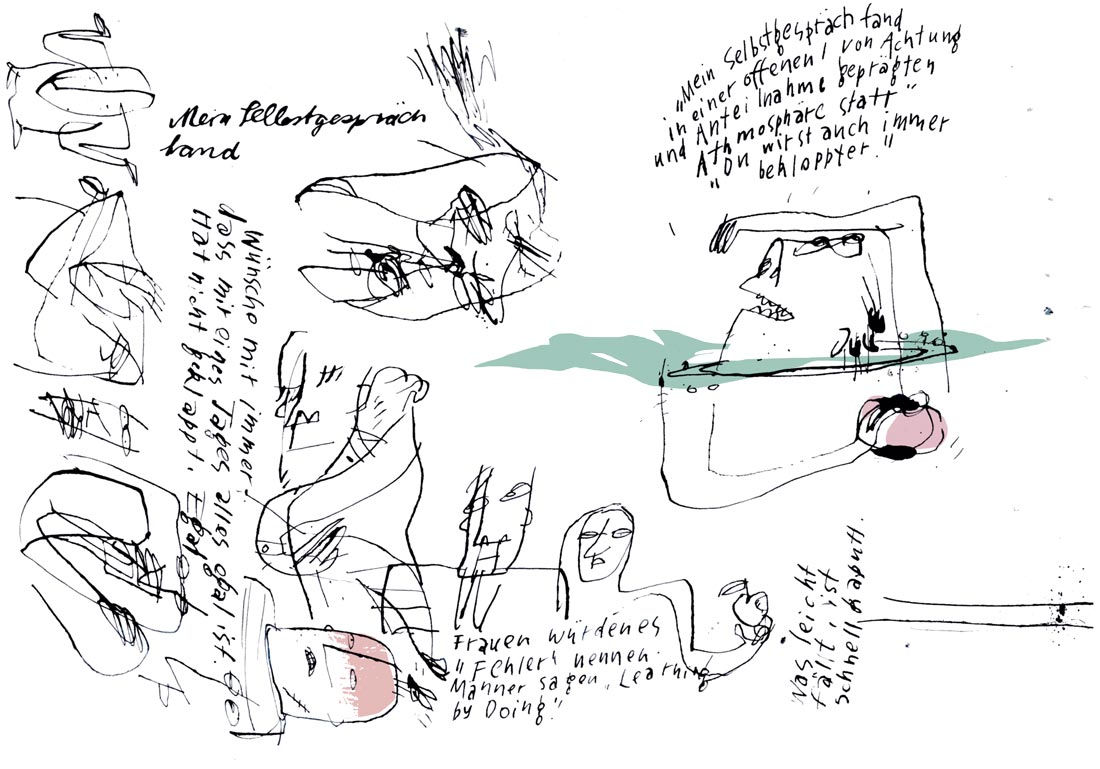 Mein Selbstgespräch
fand
"Mein Selbstgespräch fand
in einer offenen, von Achtung
und Anteilnahme geprägten
Athmosphäre statt"
"Du wirst auch immer
bekloppter."
Wünsche mir immer,
dass mir eines Tages alles egal ist.
Hat nicht geklappt. Egal
Frauen würden es
"Fehler" nennen.
Männer sagen "Learning
by Doing"!
Was leicht
fällt, ist
schnell kaputt.